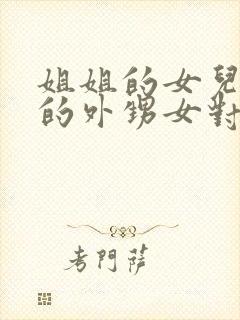 姐姐的女兒
的外甥女對
考門薩